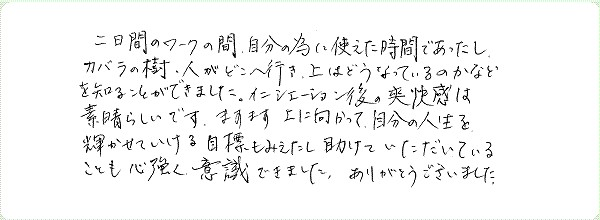 二日間のワークの間、自分の為に使えた時間であったし、
カバラの樹、人がどこへ行き、上はどうなっているのかなど
を知ることができました。イニシエーション後の爽快感は
素晴らしいです。ますます上に向かって、自分の人生を
輝かせていける目標もみえたし助けていただいている
ことも心強く意識できました。ありがとうございました。